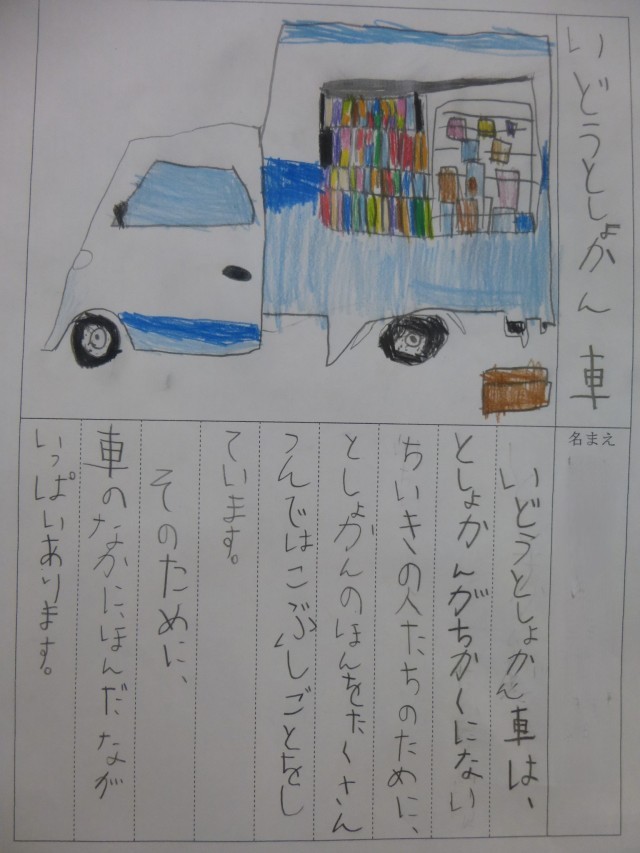 いどうとしょかん車
名まえ
いどうとしょかん車は、
としょかんがちかくにない
ちいきの人たちのために、
としょかんのほんをたくさん
つんではこぶしごとをし
ています。
そのために、
車のなかに、ほんだなが
いっぱいあります。